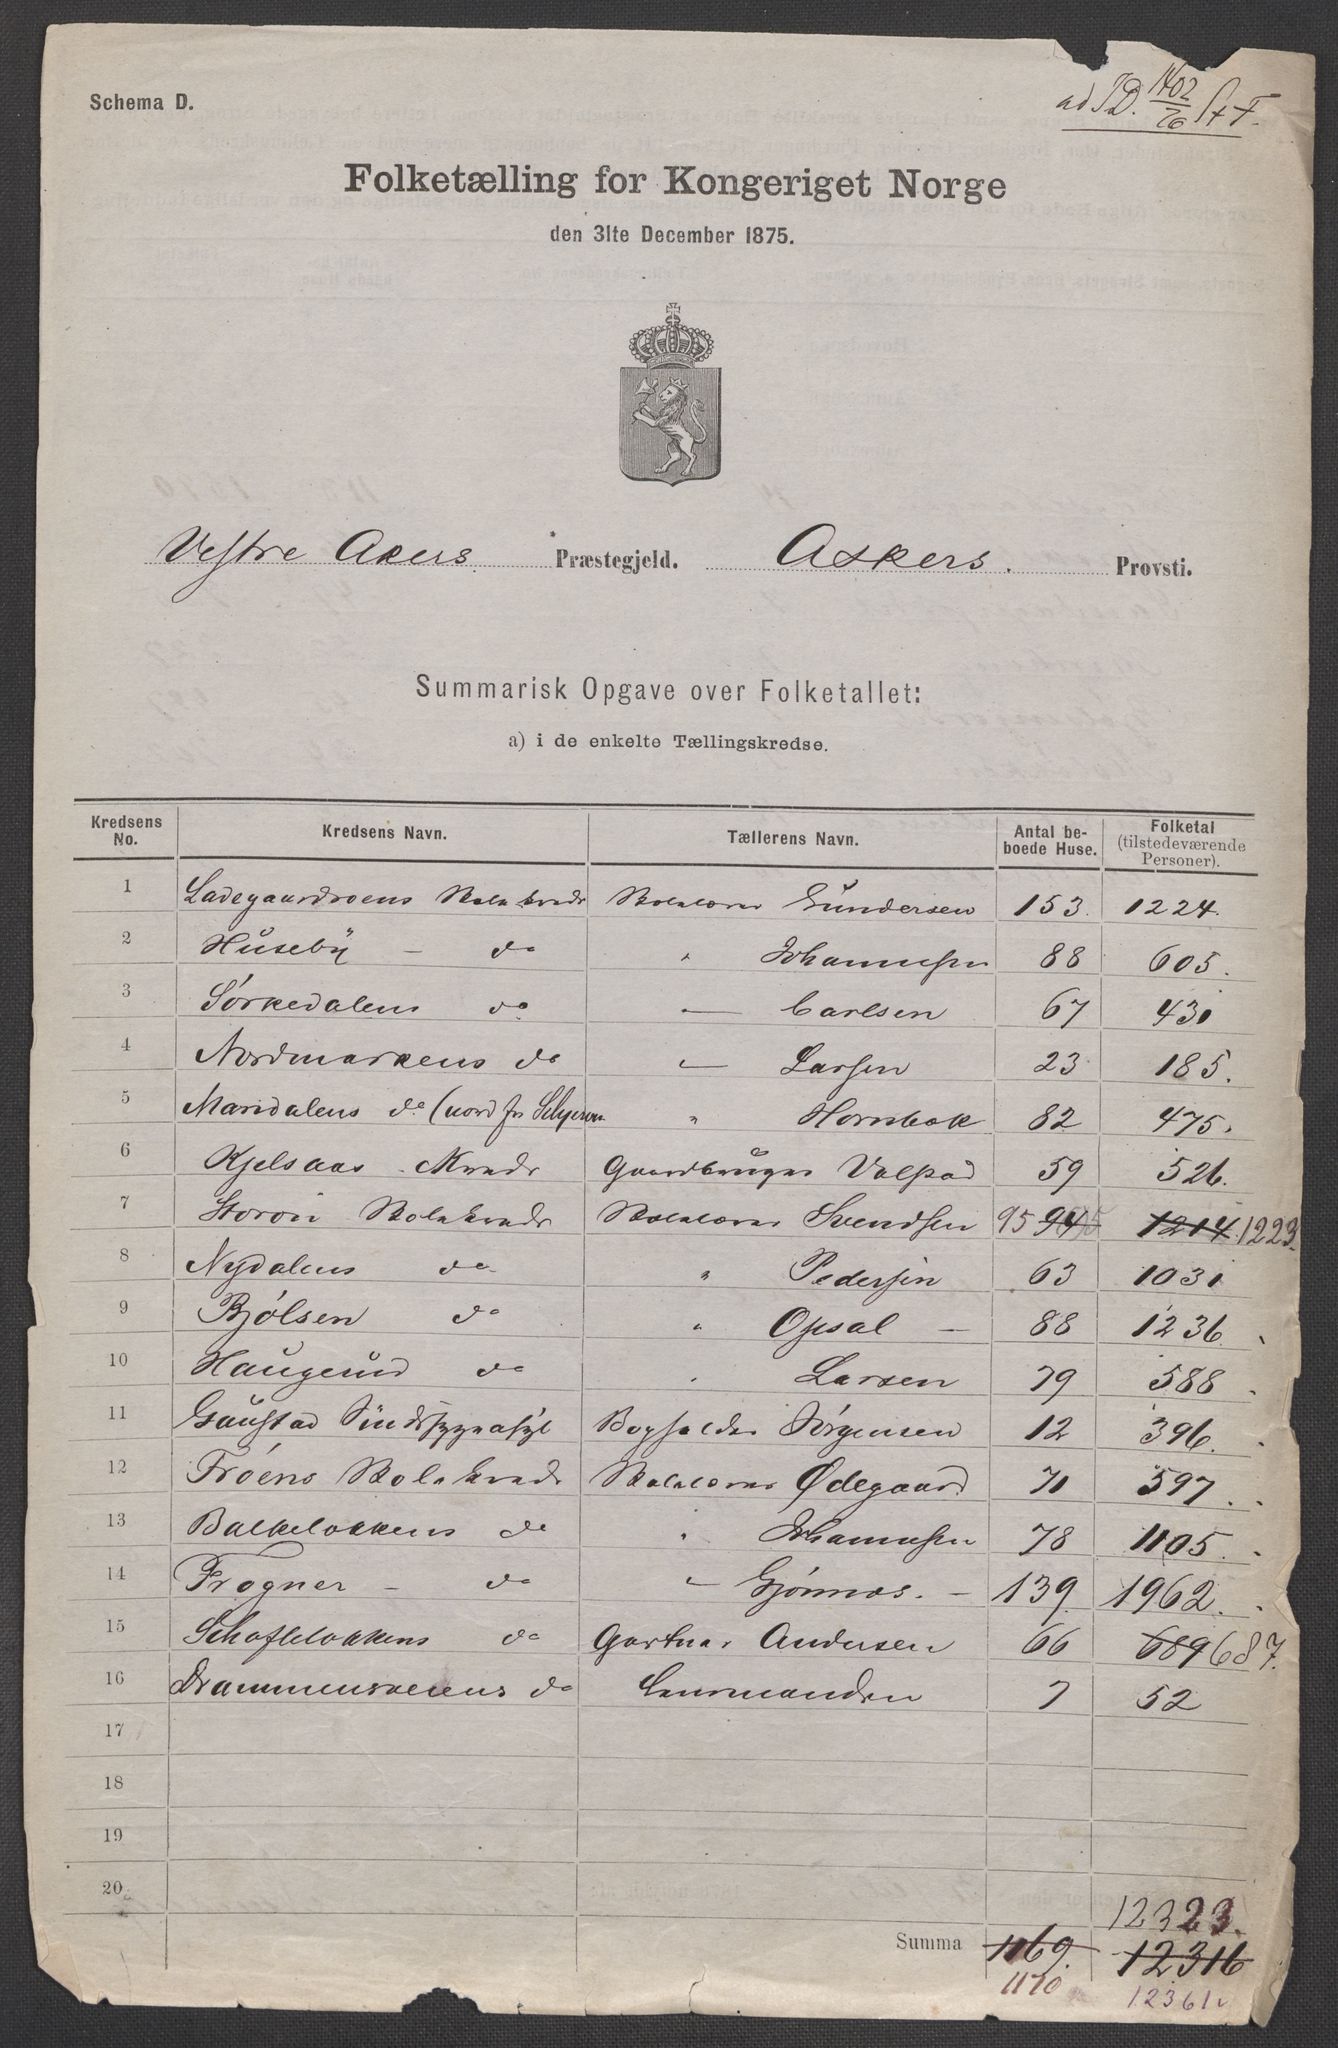 Schema D.
ad J.D. 1402/76 St F.
Folketælling for Kongeriget Norge
den 31te December 1875.
Vestre Akers Præstegjeld. Askers. Provsti.
Summarisk Opgave over Folketallet:
a) i de enkelte Tællingskredse.
Kredsens No. Kredsens Navn. Tællerens Navn. Antal beboede Huse. Folketal (tilstedeværende Personer).
1 Ladegaardsøens Skolekreds Skolelærer Gundersen 153. 1224.
2 Huseby – do " Johannesen 88 605.
3 Sørkedalens do — Carlsen 67 430
4 Nordmarkens do — Larsen 23 185.
5 Maridalens do (nord for Skjærven " Hornbæk 82 475.
6 Kjelsaas Kreds Gaardbruger Valstad 59 526.
7 Storøn Skolekreds Skolelærer Svendsen 95 94 1214. 1223.
8 Nydalens do " Pedersen 63 1031
9 Bjølsen do " Opsal — 88 1236.
10 Haugerud do " Larsen 79 588.
11 Gaustad Sindssygeasyl Bogholder Jørgensen 12 396.
12 Frøens Skolekreds Skolelærer Ødegaard 71 597.
13 Balkeløkkens do " Johannesen 78 1105.
14 Frogner – do " Gjønnæs. — 139. 1962.
15 Schafteløkkens do Gartner Andersen 66 689 687.
16 Drammensveiens do Lensmanden 7 52
17
18
19
20
12323.
Summa 1169. 12316
1170 12361